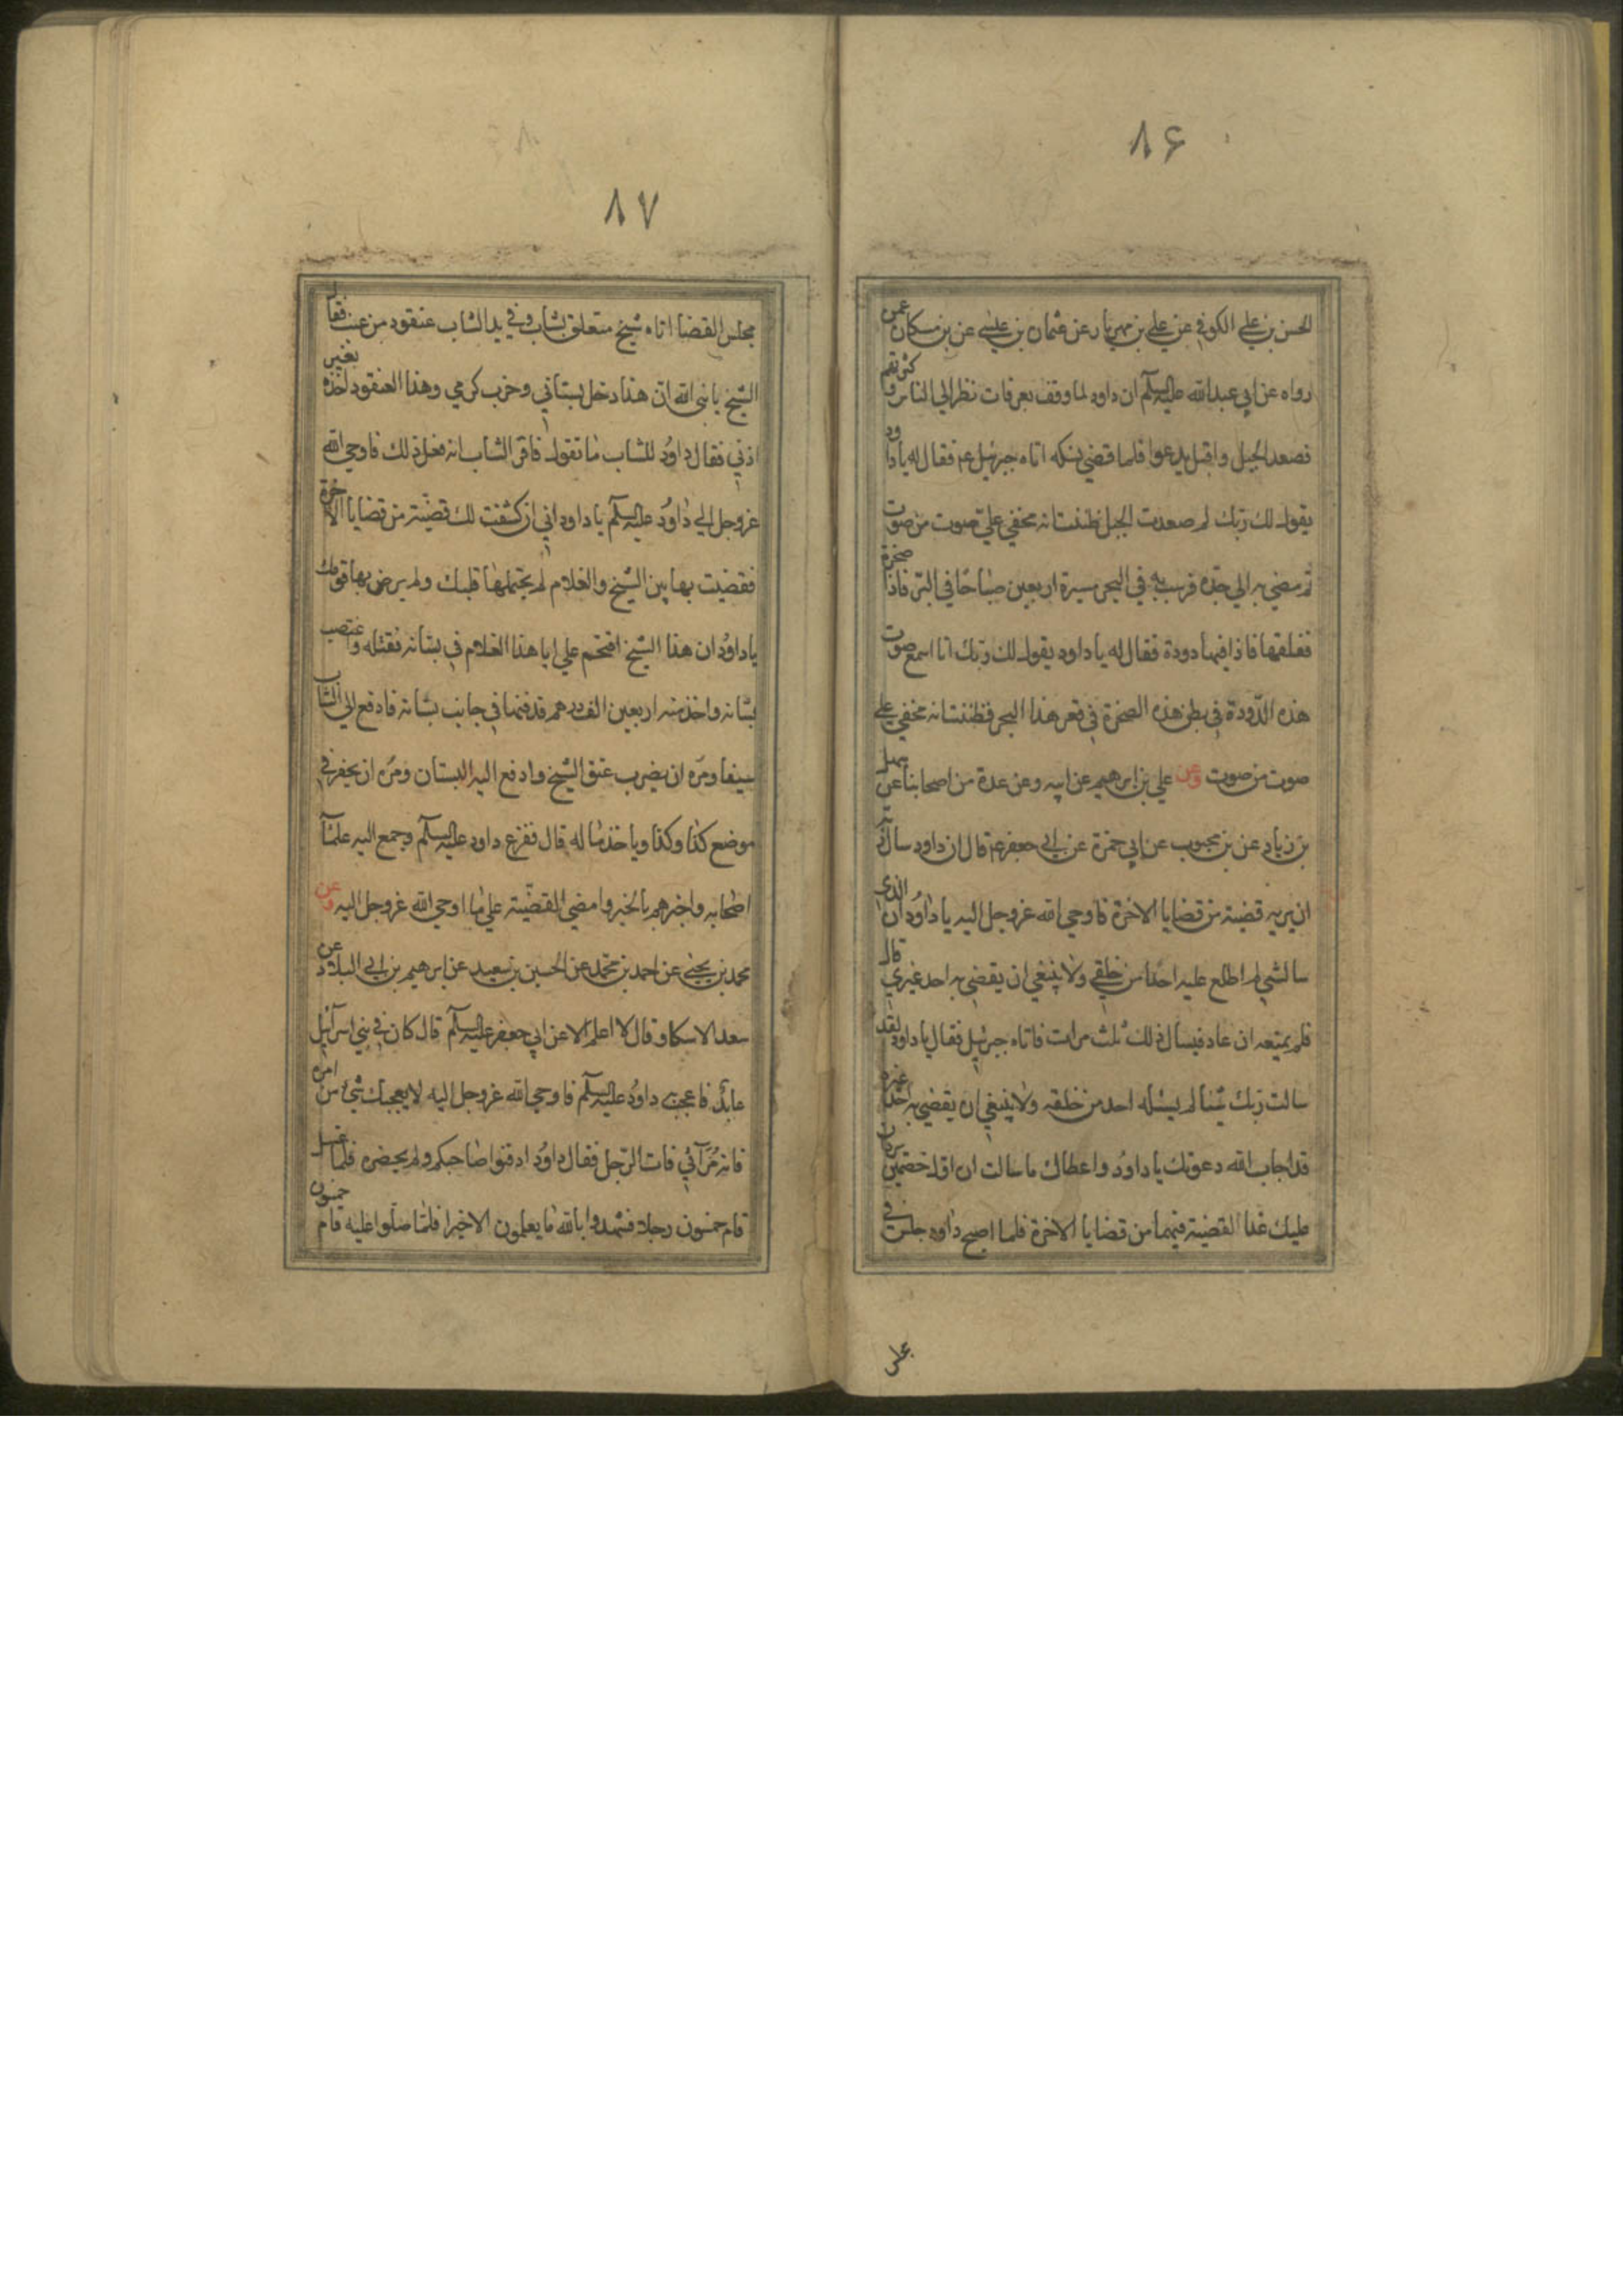 ۸۶
الحسن بن علي الكوفي عن علي بن مهزيار عن عثمان بن عليسي عن بن مسكان عمن
رواه عن ابي عبدالله عليه السلم ان داود لما وقف بعرفات نظر الي الناس و كثرتهم
فصعد الجبل واقبل يدعوا فلما قضي نسكه اتاه جبرئيل عم فقال له يا داود
يقول لك ربك لم صعدت الجبل ظننت انه يخفي علي صوت من صوت
ثم مضي به الي جده فرسب به في البحر مسيرة اربعين صباحا في البر فاذا صخرة
ففلقها فاذا فيها دودة فقال له يا داود يقول لك ربك انا اسمع صوت
هذه الدودة في بطن هذه الصخرة في قعر هذا البحر فظننت انه يخفي علي
صوت من صوت وعن علي بن ابرهيم عن ابيه وعن عدة من اصحابنا عن سهل
بن زياد عن بن محبوب عن ابي حمزة عن ابي جعفر عم قال ان داود سال ربه
ان يريه قضية من قضايا الاخرة فاوحي الله عز وجل اليه يا داود ان الذي
سالتني لم اطلع عليه احدا من خلقي ولا ينبغي ان يقضي به احد غيري قال
فلم يمنعه ان عاد فيسال ذلك ثلث مرات فاتاه جبرئيل فقال يا داود لقد
سالت ربك شيئا لم يسئله احد من خلقه ولا ينبغي ان يقضي به احد غيره
قد اجاب الله دعوتك يا داود واعطاك ما سالت ان اول خصمين يردان
عليك غدا القضية فيهما من قضايا الاخرة فلما اصبح داود جلس في
۸۷
مجلس القضا اتاه شيخ متعلق بشاب وفي يد الشاب عنقود من عنب فقال
الشيخ يا نبي الله ان هذا دخل بستاني وخرب كرمي وهذا العنقود اخذه بغير
اذني فقال داود للشاب ما تقول فاقر الشاب انه فعل ذلك فاوحي الله
عز وجل الي داود عليه السلم يا داود اني ان كشفت لك قضية من قضايا الاخرة
فقضيت بها بين الشيخ والغلام لم يحتملها قلبك ولم يرض بها قومك
يا داود ان هذا الشيخ اقتحم علي ابا هذا الغلام في بستانه فقتله واغتصب
بستانه واخذ منه اربعين الف درهم فدفنها في جانب بستانه فادفع الي الشاب
سيفا ومره ان يضرب عنق الشيخ وادفع اليه البستان ومره ان يحفر في
موضع كذا وكذا وياخذ ماله قال ففزع داود عليه السلم وجمع اليه علمآء
اصحابه واخبرهم بالخبر وامضي القضية علي ما اوحي الله عز وجل اليه وعن
محمد بن يحيي عن احمد بن محمد عن الحسين بن سعيد عن ابرهيم بن ابي البلاد عن
سعد الاسكاو قال لا اعلم الا عن ابي جعفر عليه السلم قال كان في بني اسرآئيل
عابد فاعجب داود عليه السلم فاوحي الله عز وجل اليه لا يعجبك شئ من امره
فانه مرآئي فات الرجل فقال داود ادفنوا صاحبكم ولم يحضره فلما غسل
قام خمسون رجلا فشهدوا بالله ما يعلمون الا خيرا فلما صلوا عليه قام خمسون